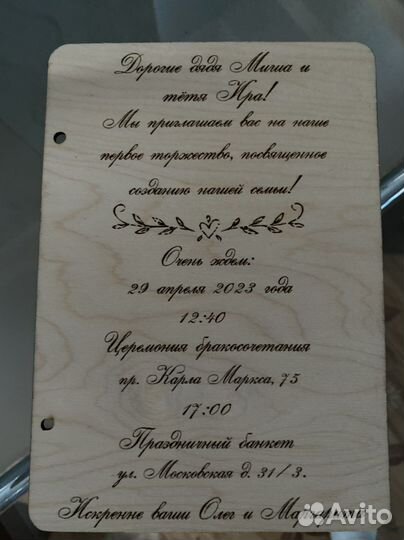 Дорогие дядя Миша и
тётя Ира!
Мы приглашаем вас на наше
первое торжество, посвященное
созданию нашей семьи!
Очень ждем:
29 апреля 2023 года
12:40
Церемония бракосочетания
пр. Карла Маркса, 75
17:00
Праздничный банкет
ул. Московская д. 31/3.
Искренне ваши Олег и
Avito